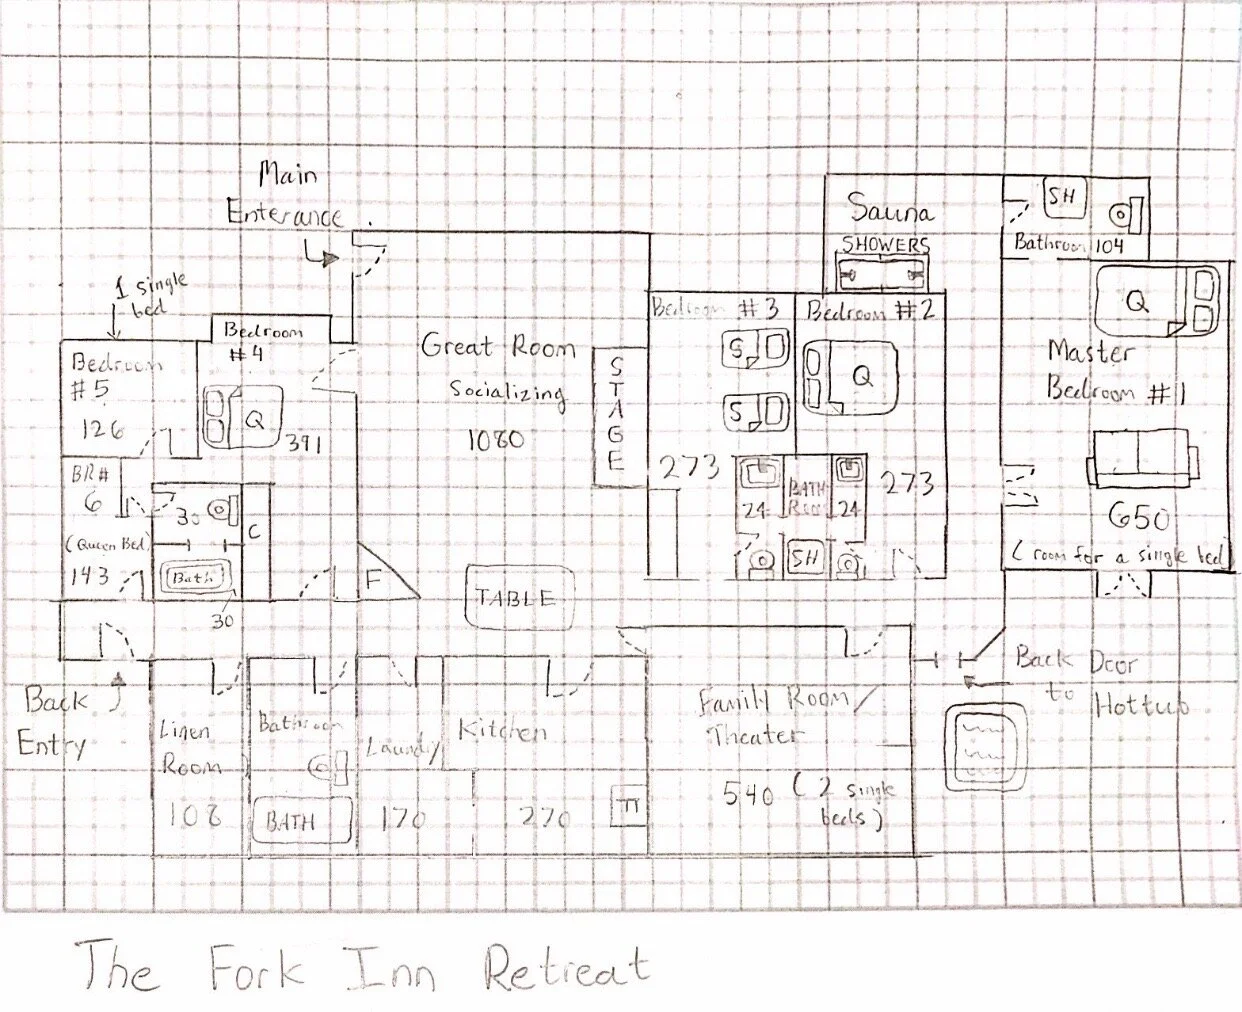 Main
Enterance
1 single
bed
Bedroom
#5
126
Bedroom
#4
Q
391
BR#
6
(Queen Bed)
143
30
C
Bath
30
F
Great Room
Socializing
1080
STAGE
TABLE
Bedroom #3
S
S
273
24
BATH
Room
24
SH
Sauna
SHOWERS
Bedroom #2
Q
273
SH
Bathroom 104
Q
Master
Bedroom #1
650
(room for a single bed)
Back
Entry
Linen
Room
108
Bathroom
BATH
Laundry
170
Kitchen
270
Family Room/
Theater
540 (2 single
beds)
Back Door
to Hottub
The Fork Inn Retreat